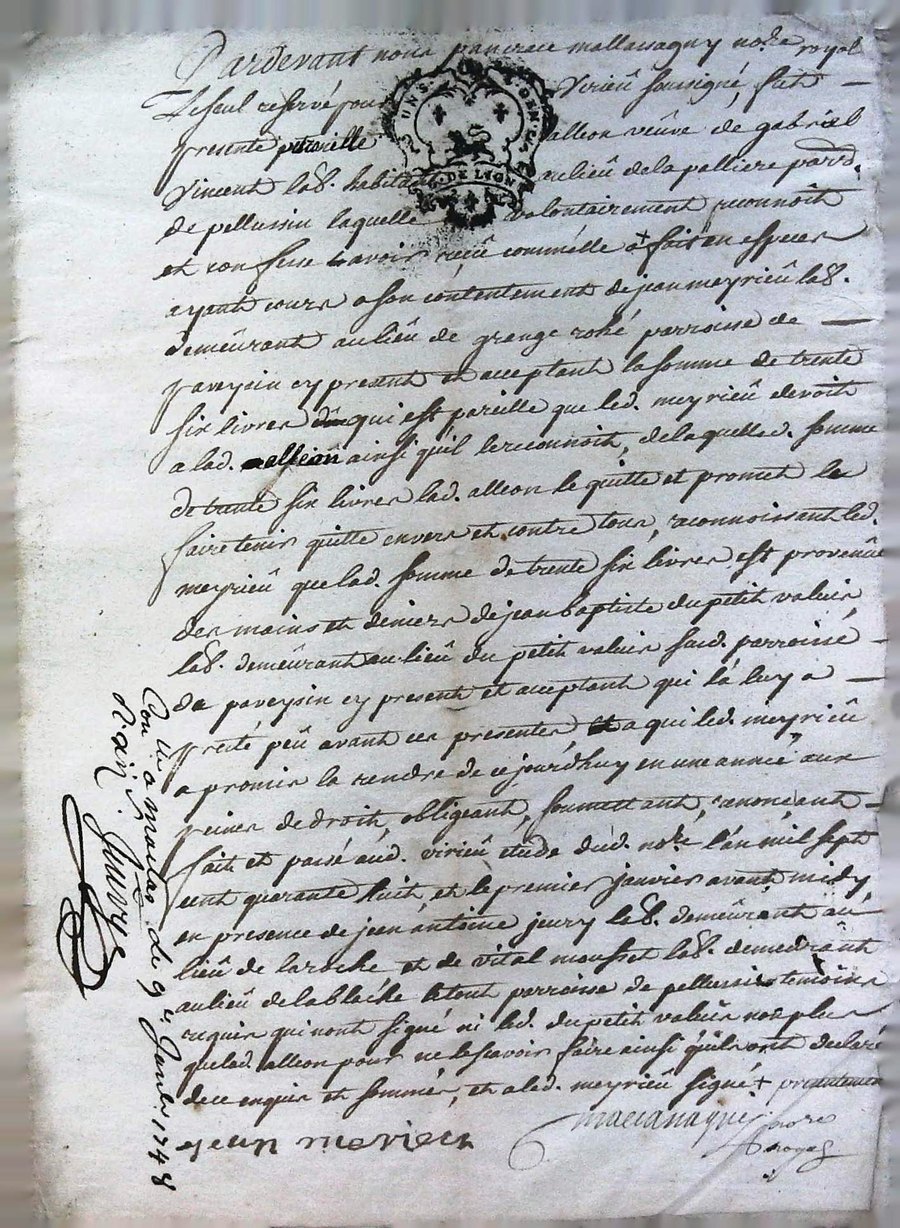 Pardevant nous pancrace mallanagny no.re royal
le seul reservé pour Virieû sousigné, fut
presente petronille alleon veûve de gabriel
Vincent lab. habitante au lieû de la palliere parr.
de pellussin laquelle volontairement reconnoit
et confesse avoir receû comm'elle a + fait en especes
ayant cours a son contentement de jean meyrieû lab.
demeûrant au lieû de grange rohé parroisse de
paveysin cy present et acceptant la somme de trente
six livres qui est pareille que led. meyrieû devoit
a lad. alleon ainsi qu'il le reconnoit, de laquelle d. somme
de trente six livres lad. alleon le quitte et promet le
faire tenir quitte envers et contre tous, reconnoissant led.
meyrieû que lad. somme de trente six livres est provenûe
des mains et deniers de jean baptiste du petit valuis
lab. demeûrant au lieû du petit valuis susd. parroisse
de paveysin cy present et acceptant qui la luy a
preté peû avant ces presentes et a qui led. meyrieû
a promis la rendre de ce jourd'huy en une année aux
peines de droit, obligeant, soumettant, renonceant
fait et passé aud. virieû etude dud. no.re l'an mil sept
cent quarante huit, et le premier janvier avant midy,
en presence de jean antoine jeury lab. demeûrant au
lieû de la roche et de vital mousset lab. demeûrant
au lieû de la blache parroisse de pellussin temoins
requis qui n'ont signé ni led. du petit valuis non plus
que lad. alleon pour ne le scavoir faire ainsi qu'ils ont declaré
de ce enquis et sommés, et a led. meyrieû signé + presentement
jean merieu
mallanagny no.re
royal
G. DE LYON
Con.lle a malas le 9e Janv. 1748